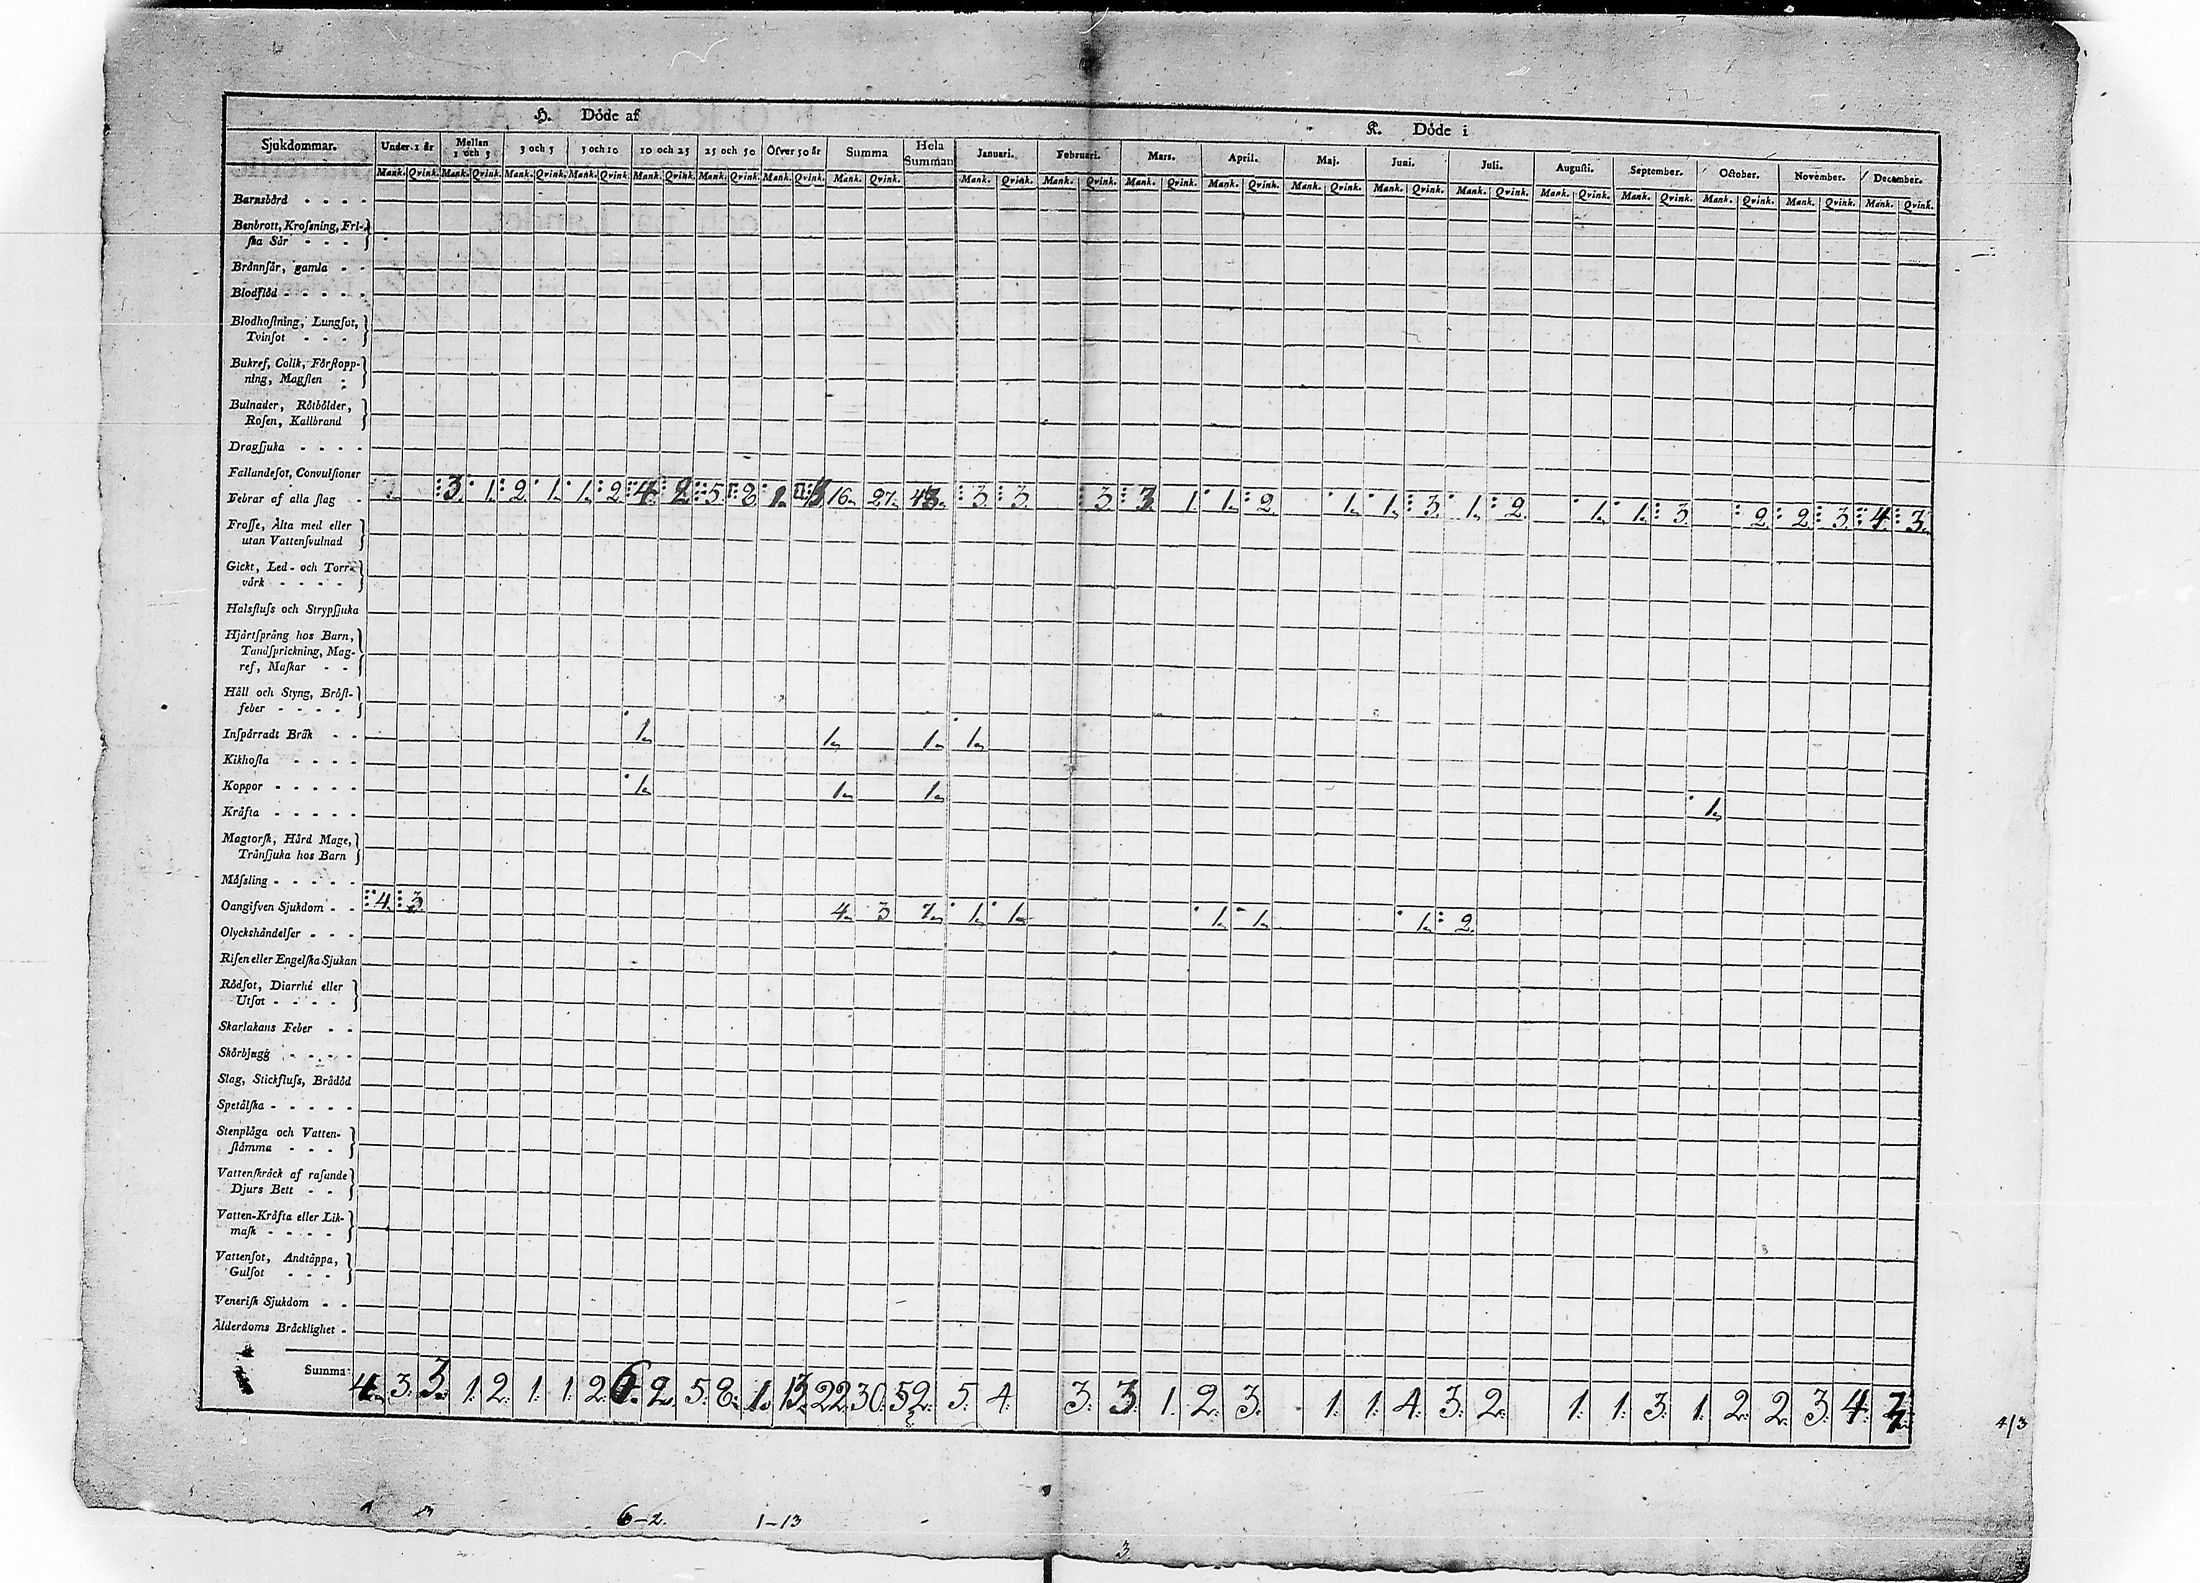 H. Döde af K. Döde i
Sjukdommar. Under 1 år Mellan 1 och 3 3 och 5 5 och 10 10 och 25 25 och 50 Öfver 50 år Summa Hela Summan Januari. Februari. Mars. April. Maj. Juni. Juli. Augusti. September. October. November. December.
Mank. Qvink. Mank. Qvink. Mank. Qvink. Mank. Qvink. Mank. Qvink. Mank. Qvink. Mank. Qvink. Mank. Qvink. Mank. Qvink. Mank. Qvink. Mank. Qvink. Mank. Qvink. Mank. Qvink. Mank. Qvink. Mank. Qvink. Mank. Qvink. Mank. Qvink. Mank. Qvink. Mank. Qvink. Mank. Qvink.
Barnsbörd
Benbrott, Krossning, Fri-
ska Sår
Brännsår, gamla
Blodflöd
Blodhostning, Lungsot,
Tvinsot
Bukref, Colik, Förstopp-
ning, Magsten
Bulnader, Rötbölder,
Rosen, Kallbrand
Dragsjuka
Fallandesot, Convulsioner
Febrar af alla slag 3. 1. 2. 1. 1. 2. 4. 2. 5. 8. 1. 13. 16. 27. 43. 3. 3. 3. 3. 1 1. 2. 1. 1. 3. 1. 2. 1. 1. 3. 2. 2. 3. 4. 3.
Frosse, Älta med eller
utan Vattensvulnad
Gickt, Led- och Torr-
värk
Halsfluss och Strypsjuka
Hjärtsprång hos Barn,
Tandsprickning, Mag-
ref, Maskar
Håll och Styng, Bröst-
feber
Inspärradt Bråk 1. 1. 1. 1.
Kikhosta
Koppor 1. 1. 1. 1.
Kräfta
Magtorsk, Hård Mage,
Tränsjuka hos Barn
Mässling
Oangifven Sjukdom 4. 3. 4. 3 7. 1. 1. 1. 1. 1. 2.
Olyckshändelser
Risen eller Engelska Sjukan
Rödsot, Diarrhé eller
Utsot
Skarlakans Feber
Skörbjugg
Slag, Stickfluss, Brådöd
Spetälska
Stenplåga och Vatten-
stämma
Vattenskräck af rasande
Djurs Bett
Vatten-Kräfta eller Lik-
mask
Vattensot, Andtäppa,
Gulsot
Venerisk Sjukdom
Ålderdoms Bräcklighet
Summa 4. 3. 3. 1. 2. 1. 1. 2. 6. 2. 5. 8. 1. 13. 22. 30. 52. 5. 4. 3. 3. 1. 2. 3. 1. 1. 4. 3. 2. 1. 1. 3. 1. 2. 2. 3. 4.
4/3
6-2. 1-13
3